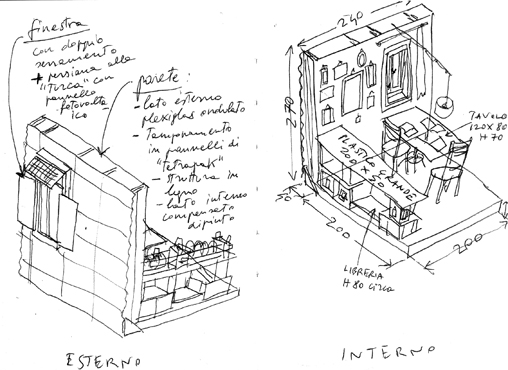 finestra
con doppio
serramento
+ persiana alla
"Turca" con
pannello
fotovolta
ico
parete:
- lato esterno
plexiglas ondulato
- Tamponamento
in pannelli di
"tetrapak"
- struttura in
legno
- lato interno
compensato
dipinto
ESTERNO
240
270
TAVOLO
120X80
H 70
PLASTICO GRANDE
200 X 50
50
200
200
LIBRERIA
H 80 circa
INTERNO